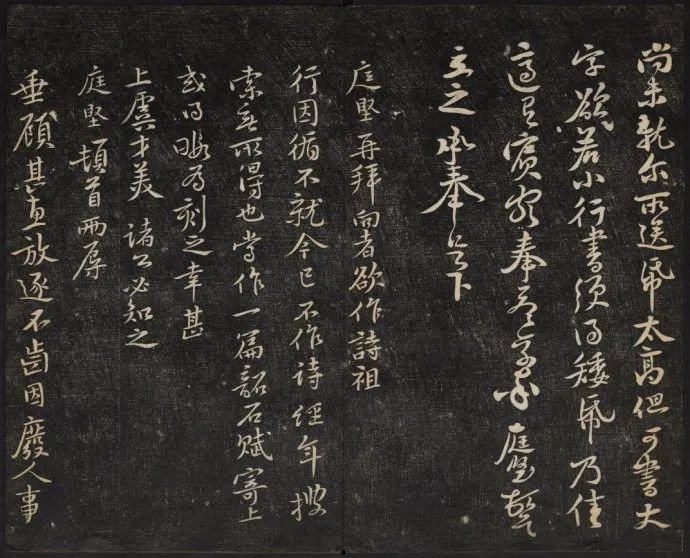 尚未乾尔所送帋太高但可書大
字欲若小行書须得矮帋乃佳
適有賓客奉答草草庭堅頓首
立之承奉足下
庭堅再拜向者欲作詩祖
行因循不就今已不作詩經年搜
索無所得也嘗作一篇韶石賦寄上
或得暇为刻之幸甚
上虞才美諸公必知之
庭堅頓首两辱
垂顧其直放逐不齒因廢人事